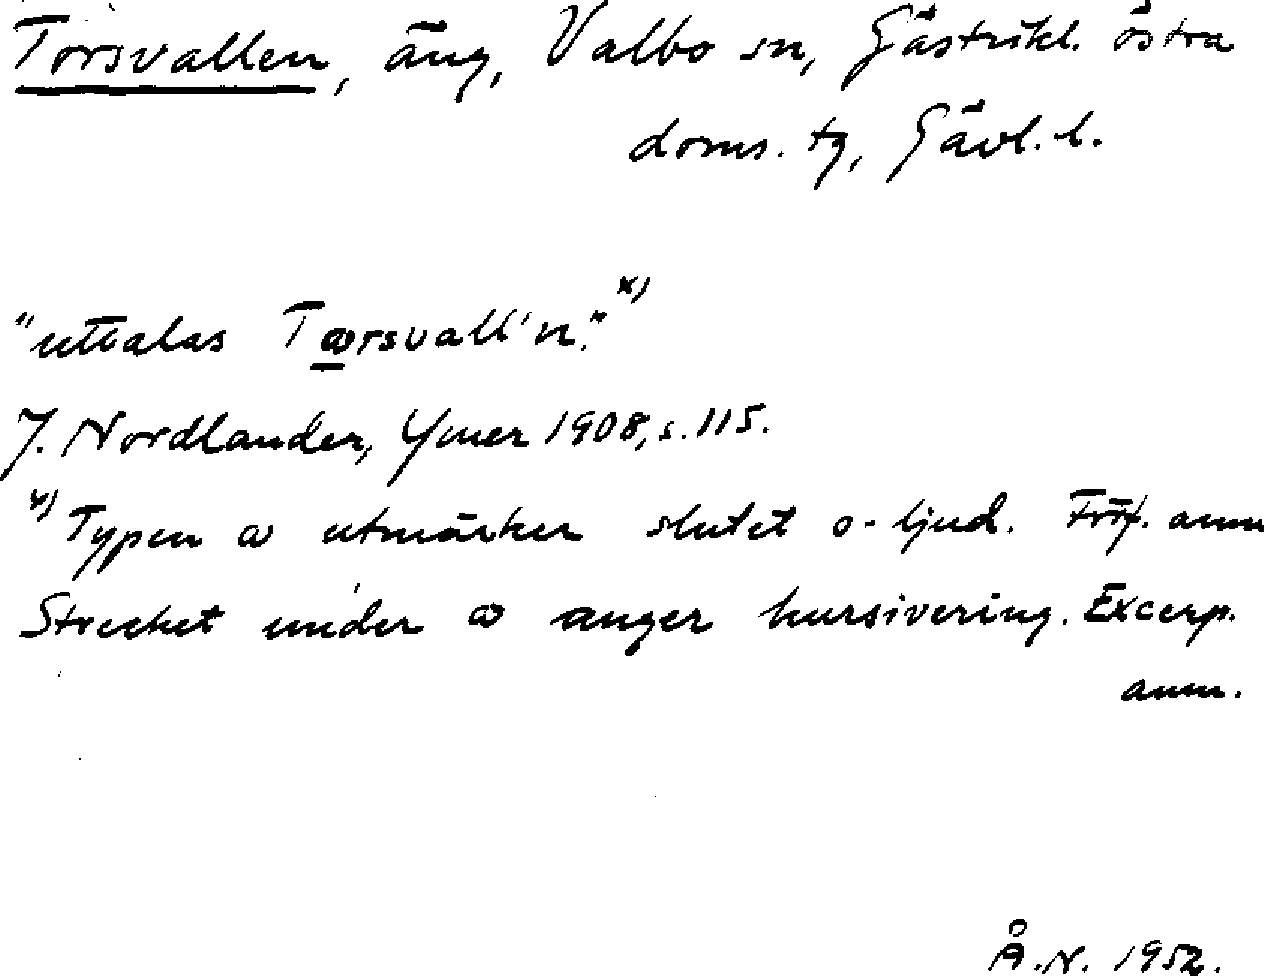 Torsvallen, äng, Valbo sn, Gästrikl. östra
doms. tg, Gävl. l.
"uttalas Tꞷrsvall'n."x)
J. Nordlander, Ymer 1908, s. 115.
x) Typen ꞷ utmärker slutet o-ljud. Förf. anm
Strecket under ꞷ anger kursivering. Excerp.
anm.
Å.N. 1952.